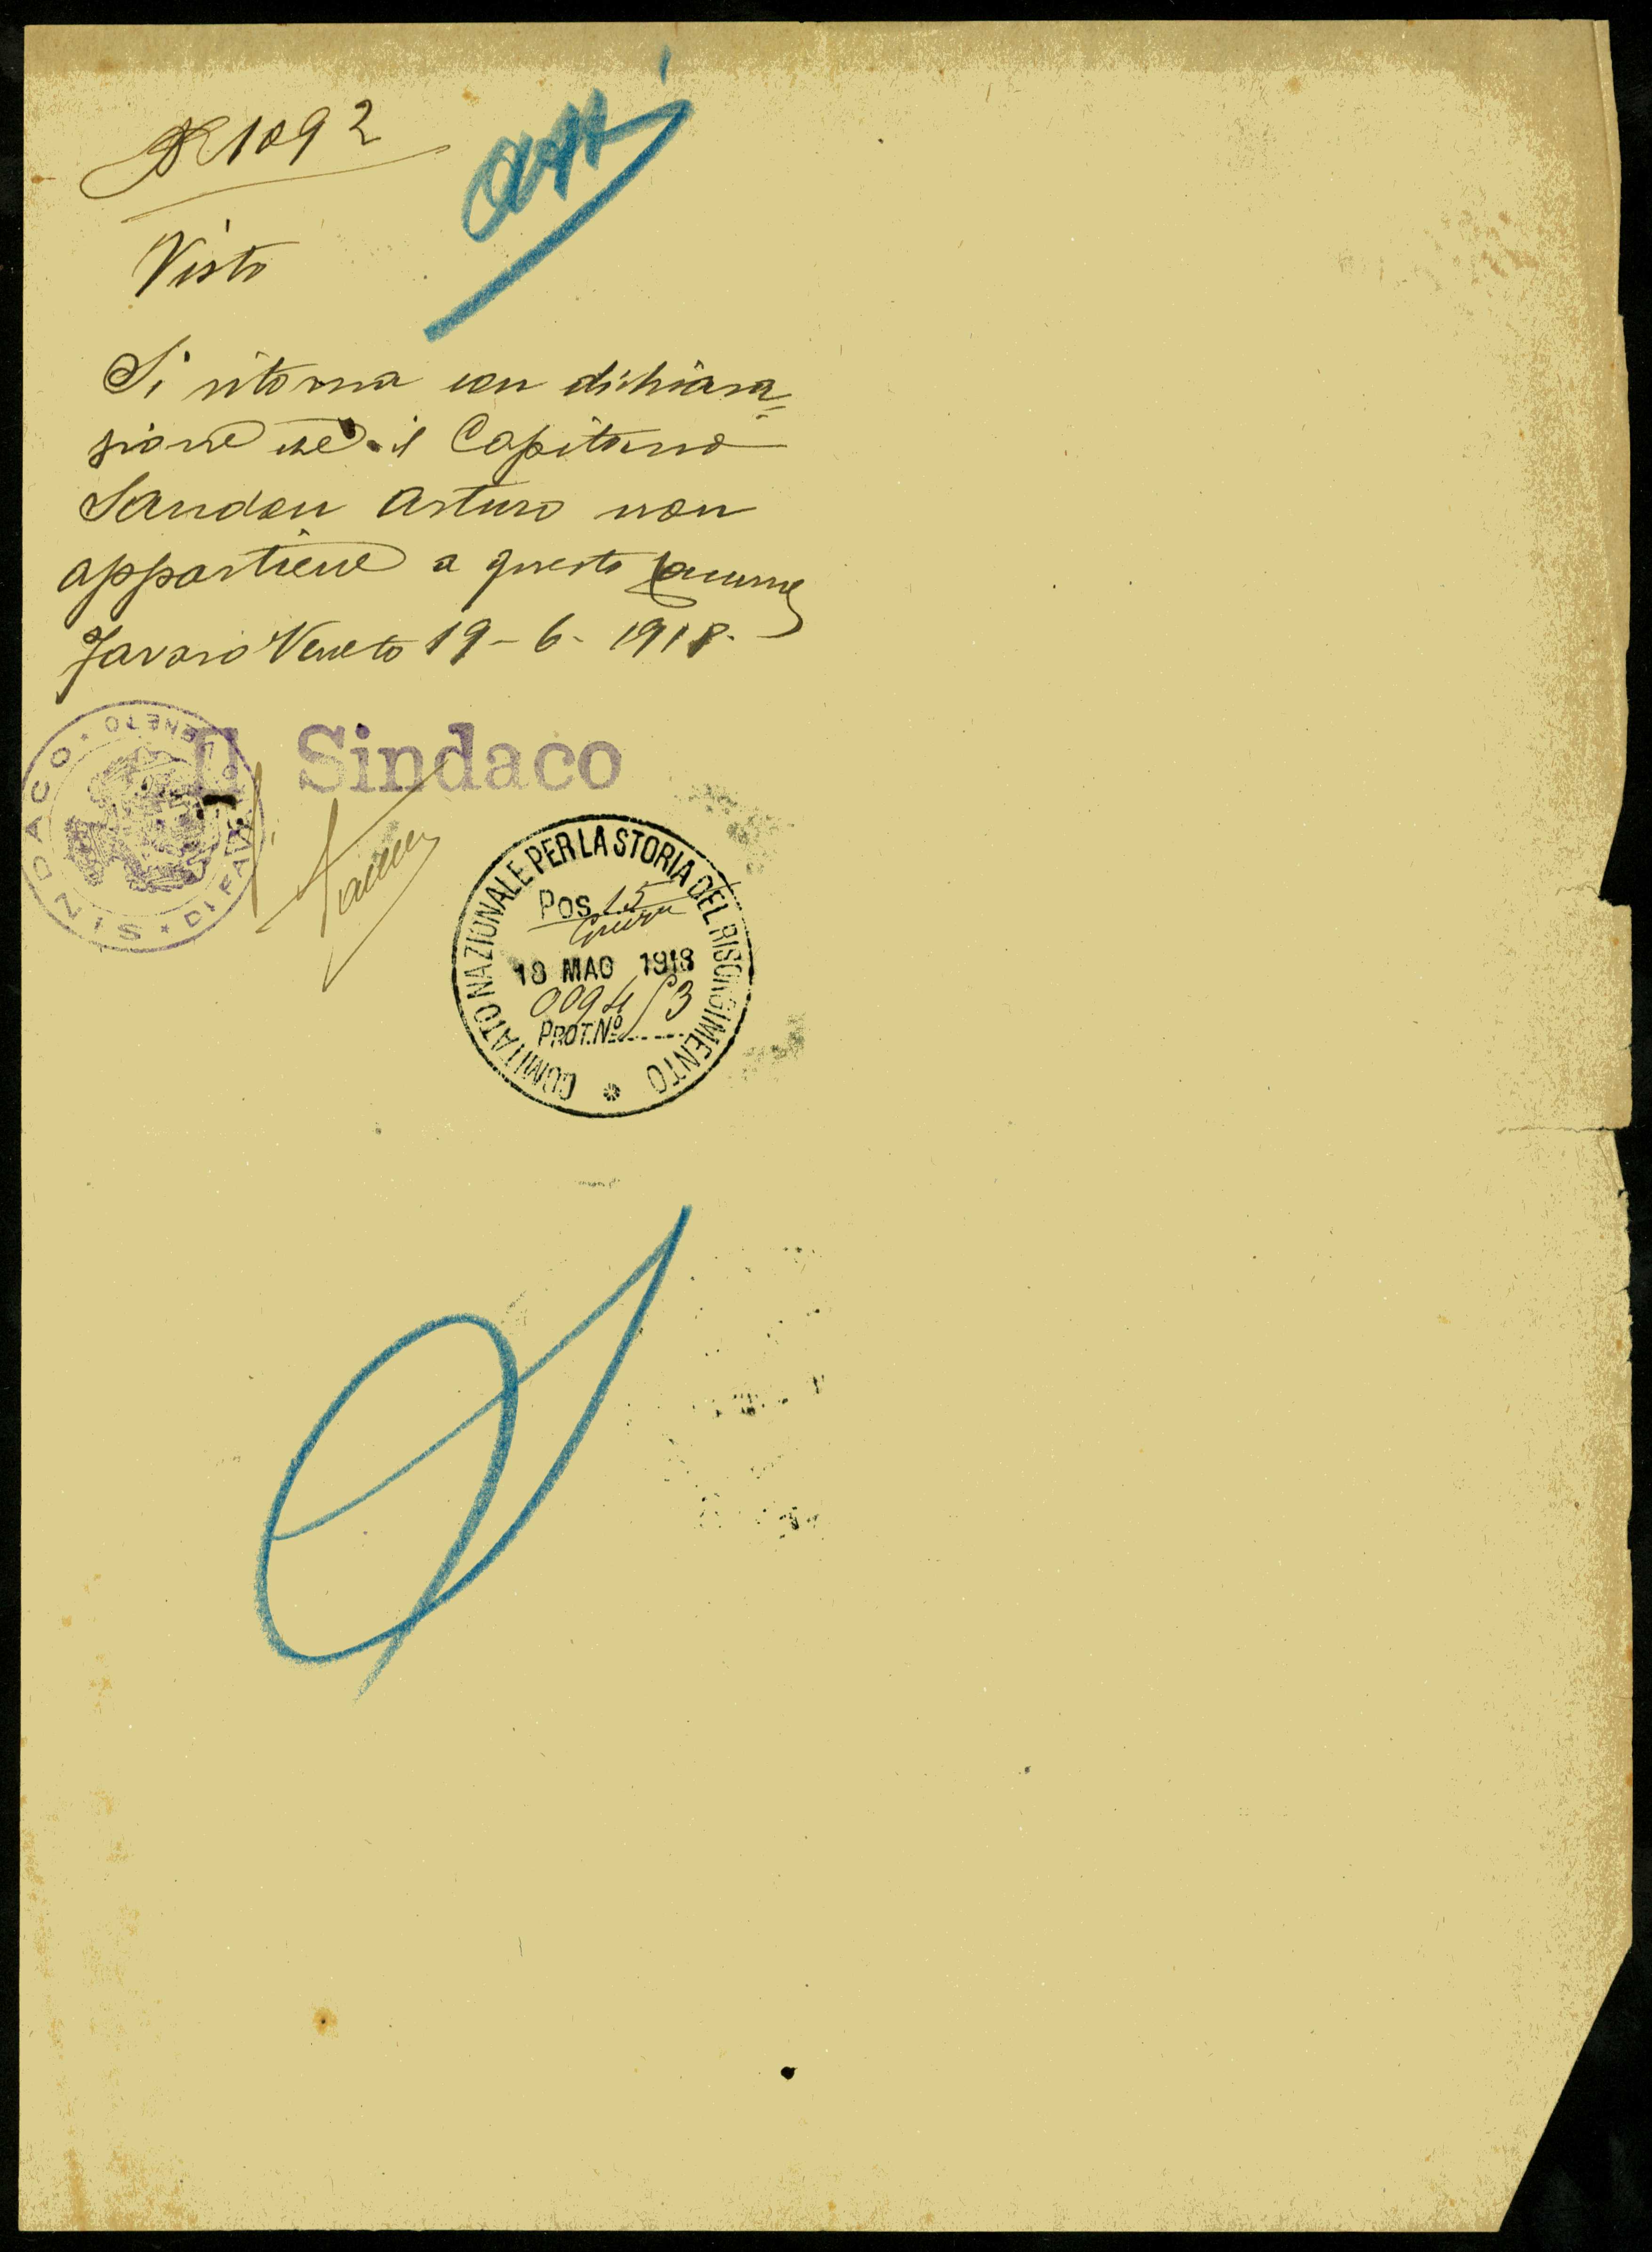 N 1092
Visto
Si ritorna con dichiara=
zione che il Capitano
Sandon Arturo non
appartiene a questo Comune
Favaro Veneto 19-6-1918.
Il Sindaco
SINDACO · DI FAVARO VENETO ·
COMITATO NAZIONALE PER LA STORIA DEL RISORGIMENTO
POS. 15
Guerra
18 MAG 1918
009453
PROT. Nº